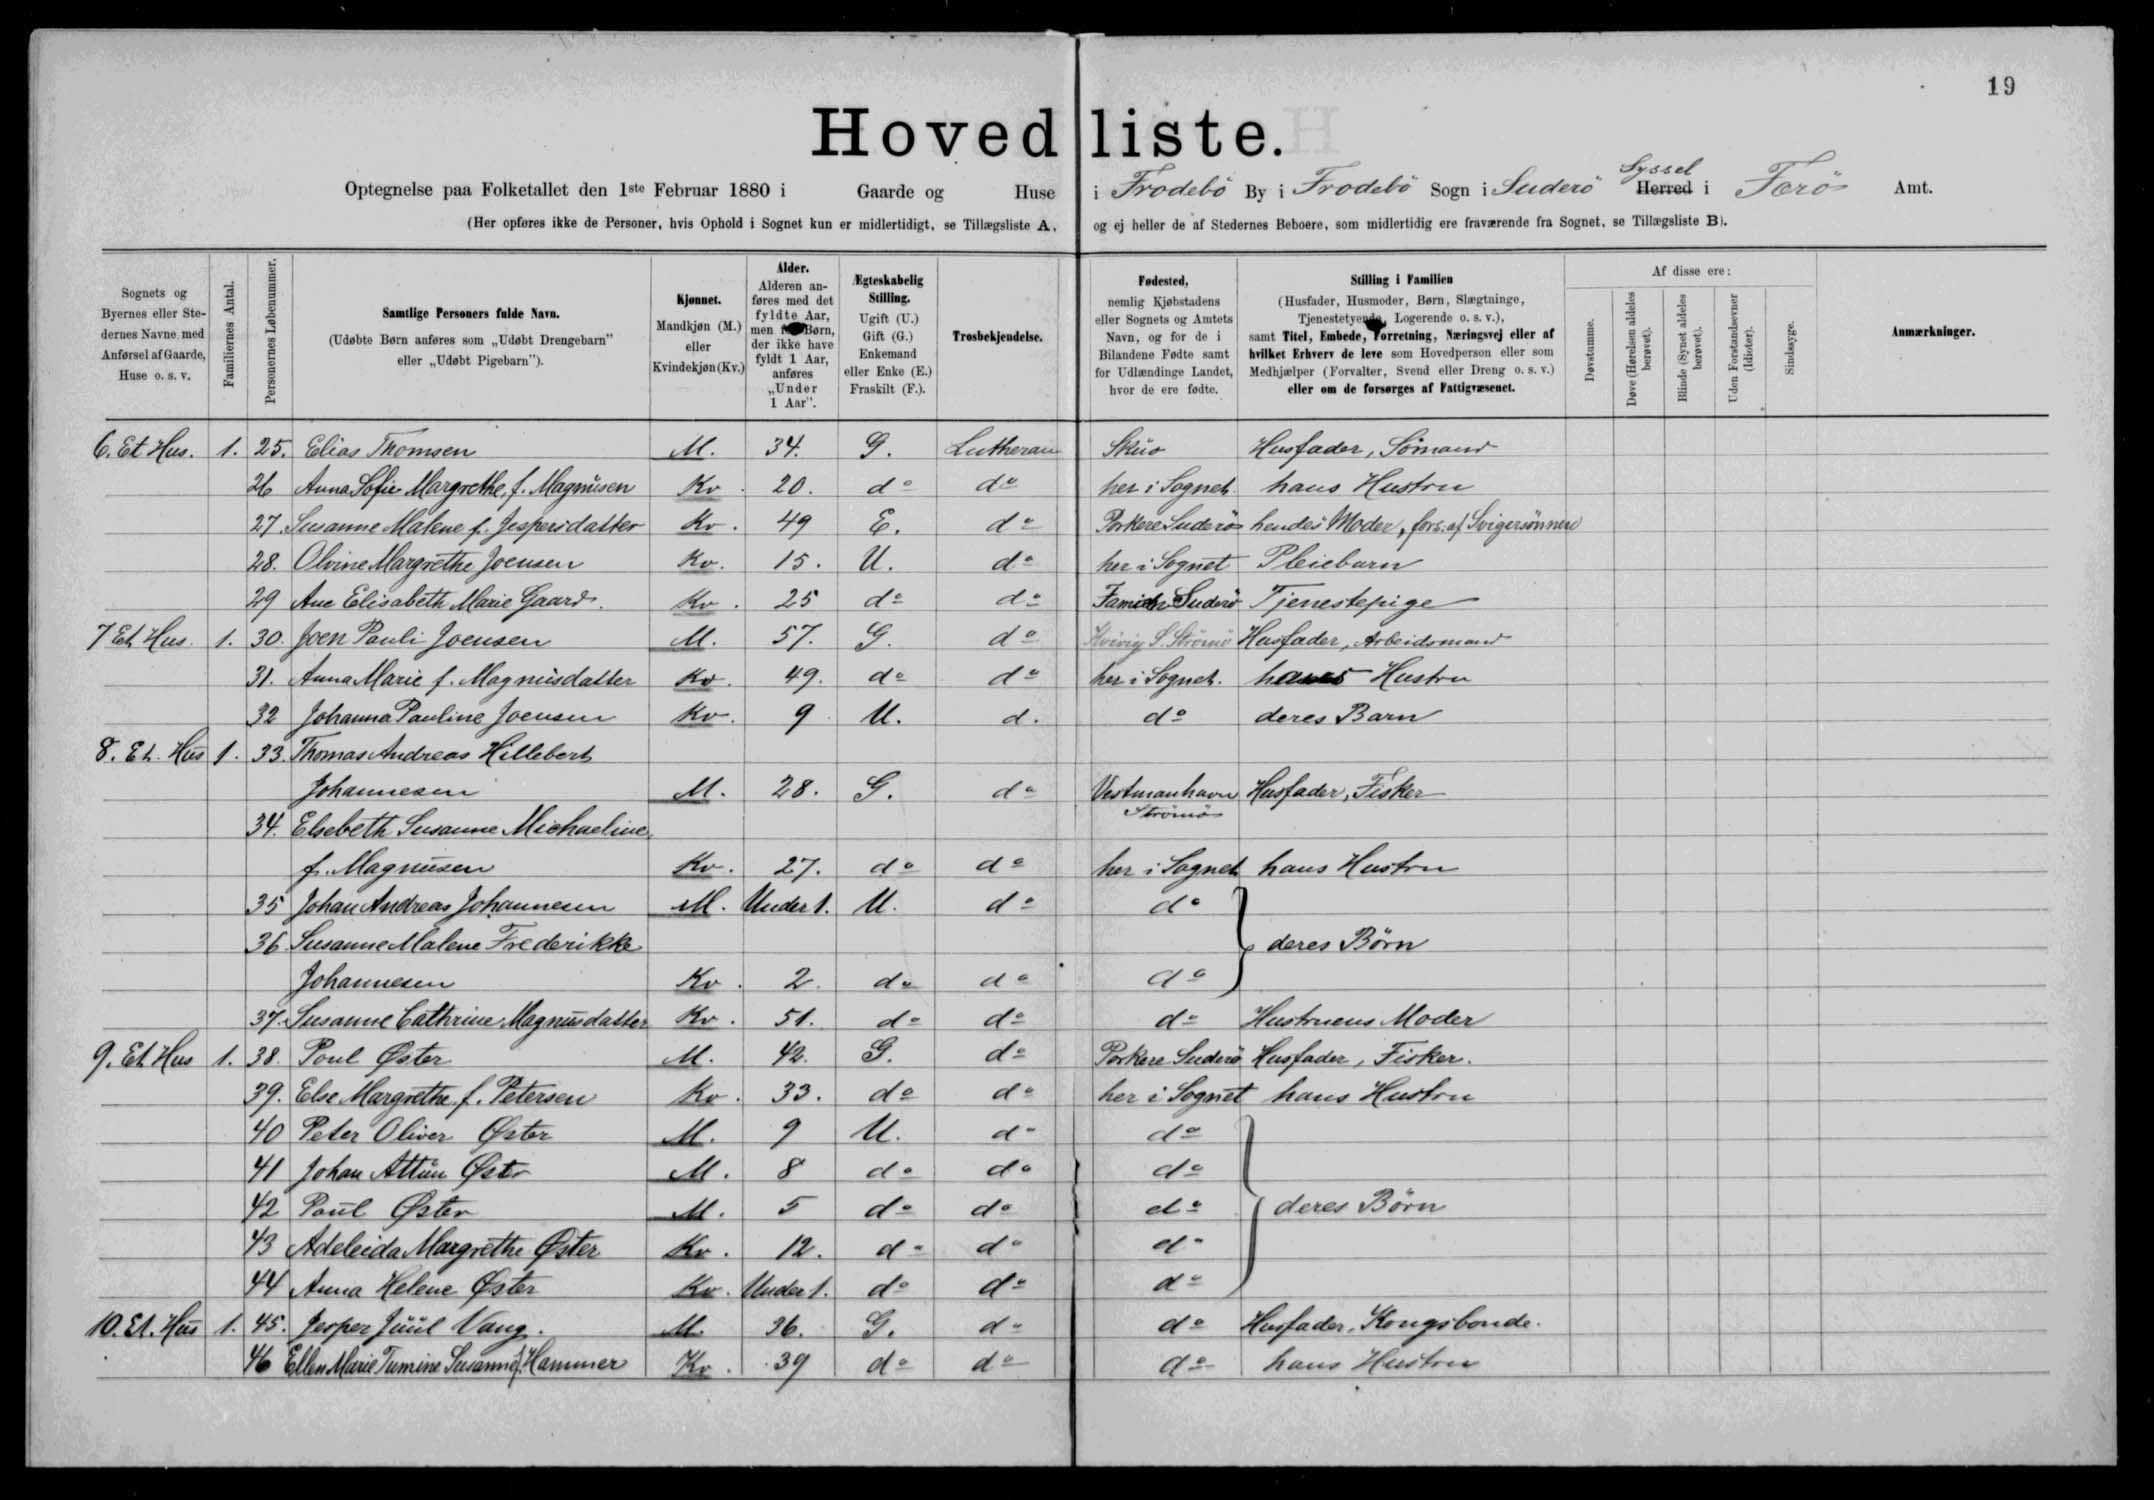 19
Hovedliste.
Optegnelse paa Folketallet den 1ste Februar 1880 i Gaarde og Huse i Frodebö By i Frodebö Sogn i Suderö Syssel Herred i Færö Amt.
(Her opføres ikke de Personer, hvis Ophold i Sognet kun er midlertidigt, se Tillægsliste A, og ej heller de af Stedernes Beboere, som midlertidig ere fraværende fra Sognet, se Tillægsliste B).
Sognets og Byernes eller Stedernes Navne med Anførsel af Gaarde, Huse o. s. v.
Familiernes Antal.
Personernes Løbenummer.
Samtlige Personers fulde Navn.
(Udøbte Børn anføres som „Udøbt Drengebarn" eller „Udøbt Pigebarn").
Kjønnet.
Mandkjøn (M.) eller Kvindekjøn (Kv.)
Alder.
Alderen anføres med det fyldte Aar, men Børn, der ikke have fyldt 1 Aar, anføres „Under 1 Aar".
Ægteskabelig Stilling.
Ugift (U.) Gift (G.) Enkemand eller Enke (E.) Fraskilt (F.).
Trosbekjendelse.
Fødested,
nemlig Kjøbstadens eller Sognets og Amtets Navn, og for de i Bilandene Fødte samt for Udlændinge Landet, hvor de ere fødte.
Stilling i Familien
(Husfader, Husmoder, Børn, Slægtninge, Tjenestetyende, Logerende o. s. v.),
samt Titel, Embede, Forretning, Næringsvej eller af hvilket Erhverv de leve som Hovedperson eller som Medhjælper (Forvalter, Svend eller Dreng o. s. v.) eller om de forsørges af Fattigvæsenet.
Af disse ere:
Døvstumme.
Døve (Hørelsen aldeles berøvet).
Blinde (Synet aldeles berøvet).
Uden Forstandsevner (Idioter).
Sindssyge.
Anmærkninger.
6. Et Hus. 1. 25. Elias Thomsen M. 34. G. Lutheran Skuö Husfader, Sömand
26 Anna Sofie Margrethe, f. Magnusen Kv. 20. do do her i Sognet. hans Hustru
27. Susanne Malene f. Jespersdatter Kv. 49 E. do Porkere Suderö hendes Moder, fors: af Svigersønnen
28. Olvine Margrethe Joensen Kv. 15. U. do her i Sognet Pleiebarn
29 Ane Elisabeth Marie Gaard. Kv. 25 do do Famien Suderö Tjenestepige
7 Et Hus. 1. 30. Joen Pauli Joensen M. 57. G. do Kvivig S. Strömö Husfader, Arbeidsmand
31. Anna Marie f. Magnusdatter Kv. 49. do do her i Sognet. hans Hustru
32 Johanna Pauline Joensen Kv. 9 U. d. do deres Barn
8. Et. Hus 1. 33. Thomas Andreas Hillebert
Johannesen M. 28. G. do Vestmanhavn Husfader, Fisker
Strömö
34. Elsebeth Susanne Michaeline
f. Magnusen Kv. 27. do do her i Sognet hans Hustru
35 Johan Andreas Johannesen M. Under 1. U. do do
36 Susanne Malene Frederikke deres Børn
Johannesen Kv. 2. do do do
37. Susanne Cathrine Magnusdatter Kv. 51. do do do Hustruens Moder
9. Et Hus 1. 38. Poul Øster M. 42. G. do Porkere Suderö Husfader, Fisker.
39. Else Margrethe f. Petersen Kv. 33. do do her i Sognet hans Hustru
40 Peter Oliver Øster M. 9 U. do do
41 Johan Øster M. 8 do do do
42 Poul Øster M. 5 do do do deres Børn
43 Adeleida Margrethe Øster Kv. 12. do do do
44 Anna Helene Øster Kv. Under 1. do do do
10. Et. Hus 1. 45. Jesper Juul Vang. M. 36. G. do do Husfader, Kongsbonde.
46 Ellen Marie Tumine Susanne f. Hammer Kv. 39 do do do hans Hustru